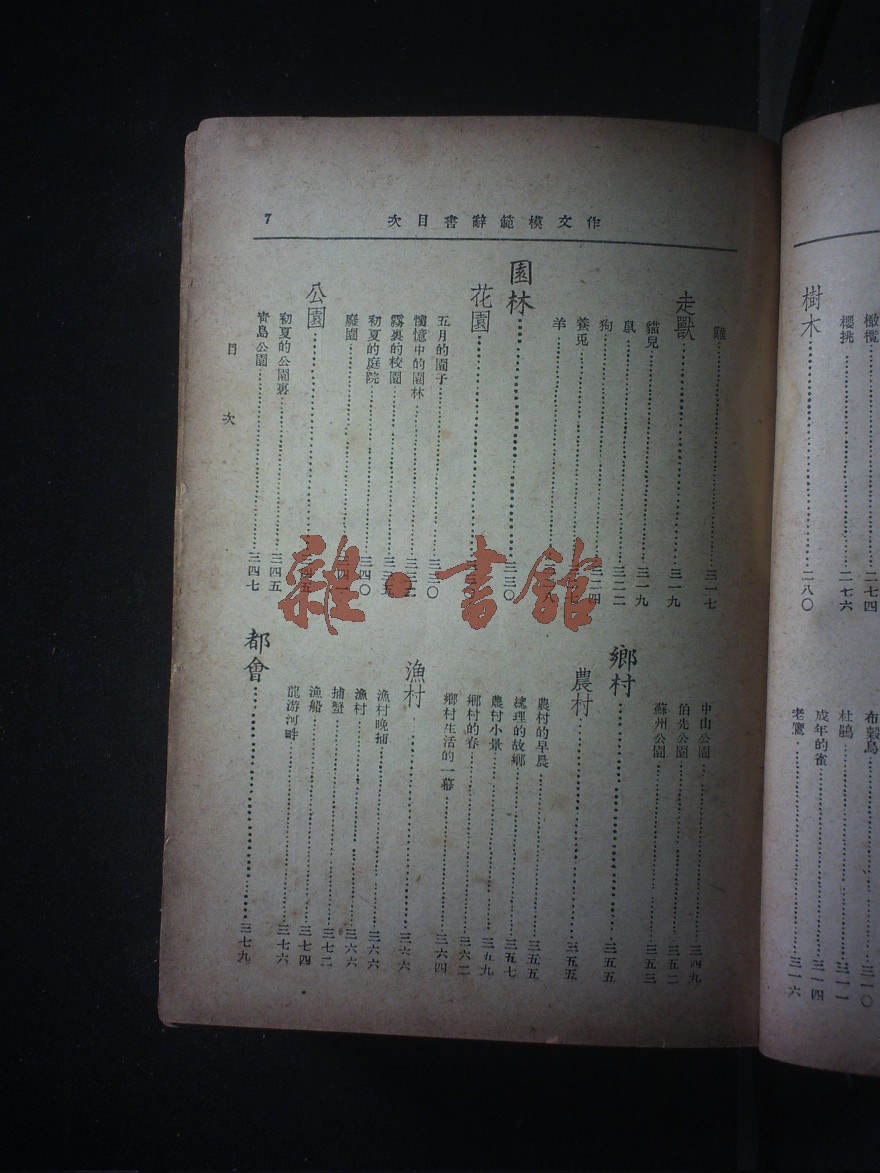 橄欖……二七四
櫻挑……二七六
樹木……二八〇
布穀鳥……三一〇
杜鵑……三一一
成年的雀……三一四
老鷹……三一六
作文模範辭書目次
7
雞……三一七
走獸……三一九
貓兒……三一九
鼠……三二二
狗……三二四
養兎……
羊……
園林……三三〇
花園……
五月的園子……三三〇
憶中的園林……
霧裏的校園……
初夏的庭院……三四〇
廢園……
公園……
初夏的公園裏……三四五
靑島公園……三四七
中山公園……三四九
伯先公園……三五二
蘇州公園……三五三
鄉村……三五五
農村……三五五
農村的早晨……三五五
的故鄉……三五七
農村小景……三五九
鄉村的春……三六二
鄉村生活的一幕……三六四
漁村……三六六
漁村晚捕……三六六
漁村……三六六
捕蟹……三七二
漁船……三七四
龍游河畔……三七六
都會……三七九
目次
雜·書館